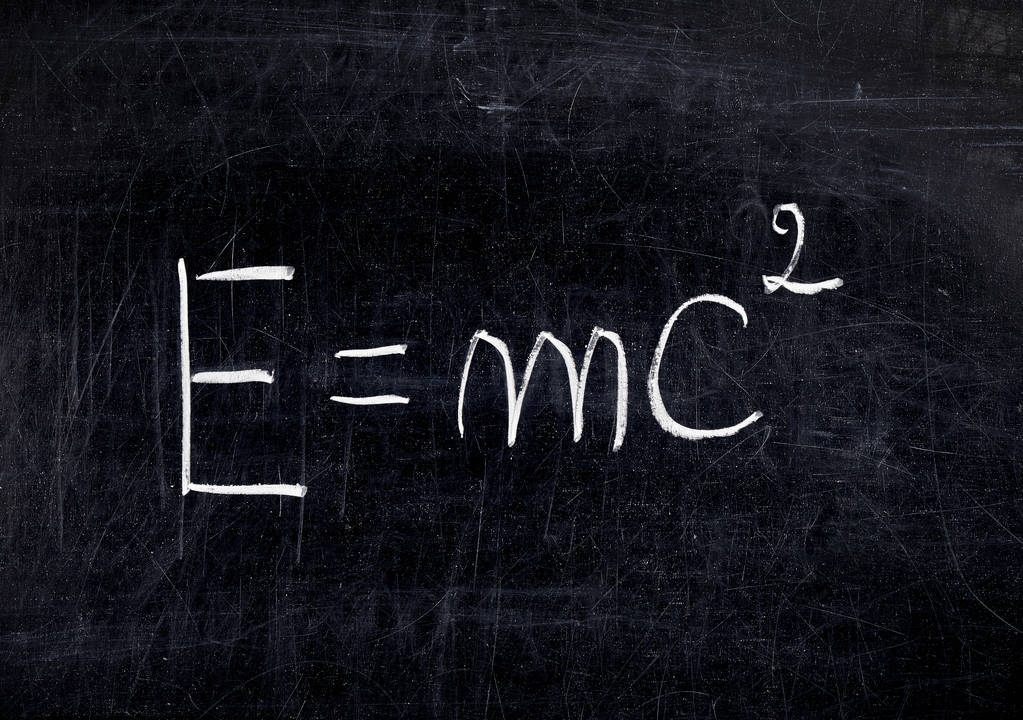 E=mc²